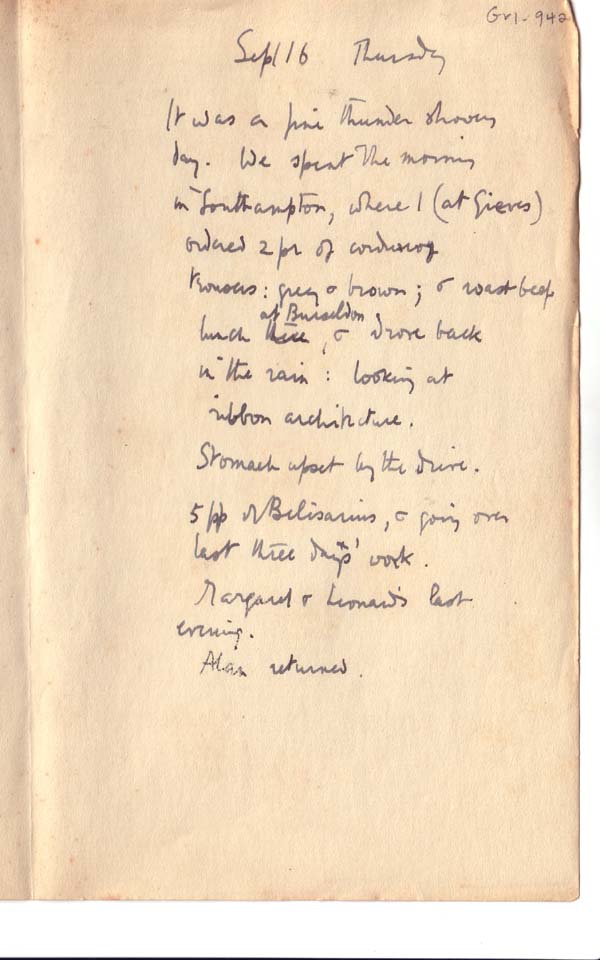 Gr1-942
Sept 16 Thursday
It was a fine thunder showery
day. We spent the morning
in Southampton, where I (at Gieves)
ordered 2 pr of corduroy
trousers: grey & brown; & roast beef
at Burseldon
lunch there, & drove back
in the rain: looking at
ribbon architecture.
Stomach upset by the drive.
5 pp of Belisarius, & going over
last three days' work.
Margaret & Leonard's last
evening.
Alan returned.